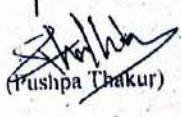 (Pushpa Thakur)